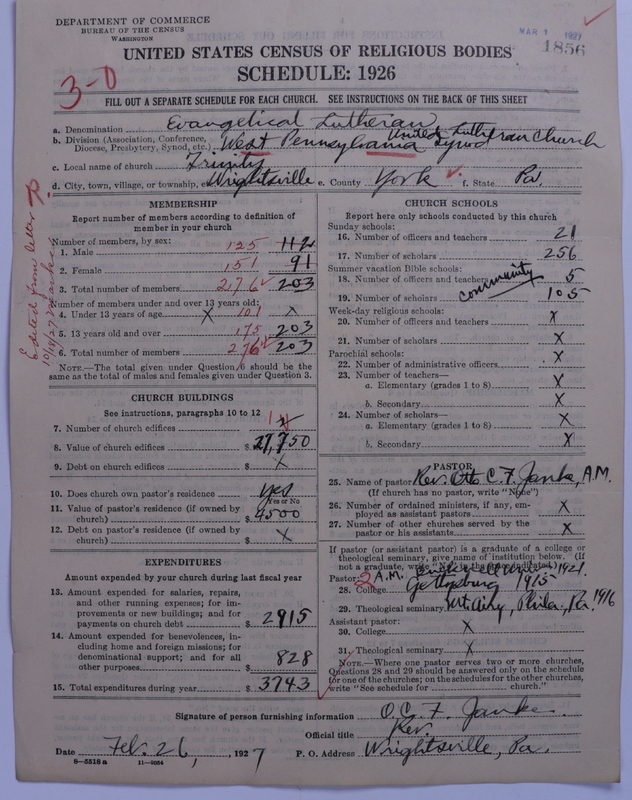 DEPARTMENT OF COMMERCE
BUREAU OF THE CENSUS
WASHINGTON
MAR 1 1927
1856
UNITED STATES CENSUS OF RELIGIOUS BODIES
SCHEDULE: 1926
3-0
FILL OUT A SEPARATE SCHEDULE FOR EACH CHURCH. SEE INSTRUCTIONS ON THE BACK OF THIS SHEET
a. Denomination Evangelical Lutheran
b. Division (Association, Conference, Diocese, Presbytery, Synod, etc.) West Pennsylvania Synod United Lutheran Church
c. Local name of church Trinity
d. City, town, village, or township, Wrightsville e. County York f. State Pa.
Edited from letter
MEMBERSHIP
Report number of members according to definition of
member in your church
Number of members, by sex:
1. Male 125 112
2. Female 151 91
3. Total number of members 276 203
Number of members under and over 13 years old:
4. Under 13 years of age X 101 X
5. 13 years old and over 175 203
6. Total number of members 276 203
NOTE.—The total given under Question 6 should be
same as the total of males and females given under Question 3.
CHURCH BUILDINGS
See instructions, paragraphs 10 to 12
7. Number of church edifices 1
8. Value of church edifices $ 27,750
9. Debt on church edifices $ X
10. Does church own pastor's residence yes
Yes or No
11. Value of pastor's residence (if owned by
church) $ 4500
12. Debt on pastor's residence (if owned by
church) $ X
EXPENDITURES
Amount expended by your church during last fiscal year
13. Amount expended for salaries, repairs,
and other running expenses; for im-
provements or new buildings; and for
payments on church debt $ 2915
14. Amount expended for benevolences, in-
cluding home and foreign missions; for
denominational support; and for all
other purposes $ 828
15. Total expenditures during year $ 3743
CHURCH SCHOOLS
Report here only schools conducted by this church
Sunday schools:
16. Number of officers and teachers 21
17. Number of scholars 256
Summer vacation Bible schools:
18. Number of officers and teachers 5
community
19. Number of scholars 105
Week-day religious schools:
20. Number of officers and teachers X
21. Number of scholars X
Parochial schools:
22. Number of administrative officers X
23. Number of teachers—
a. Elementary (grades 1 to 8) X
b. Secondary X
24. Number of scholars—
a. Elementary (grades 1 to 8) X
b. Secondary X
PASTOR
25. Name of pastor Rev. Otto C. F. Janke, A.M.
(If church has no pastor, write "None")
26. Number of ordained ministers, if any, em-
ployed as assistant pastors X
27. Number of other churches served by the
pastor or his assistants X
If pastor (or assistant pastor) is a graduate of a college or
theological seminary, give name of institution below. (If
not a graduate, write "No" in the space indicated.)
Pastor: 2 A.M. 1921
28. College Gettysburg 1915
29. Theological seminary Mt. Airy, Phila, Pa. 1916
Assistant pastor:
30. College X
31. Theological seminary X
NOTE.—Where one pastor serves two or more churches,
Questions 28 and 29 should be answered only on the schedule
for one of the churches; on the schedules for the other churches,
write "See schedule for church."
Signature of person furnishing information O. C. F. Janke
Official title Rev.
Date Feb. 26, 1927 P. O. Address Wrightsville, Pa.
8-5518a 11-9054